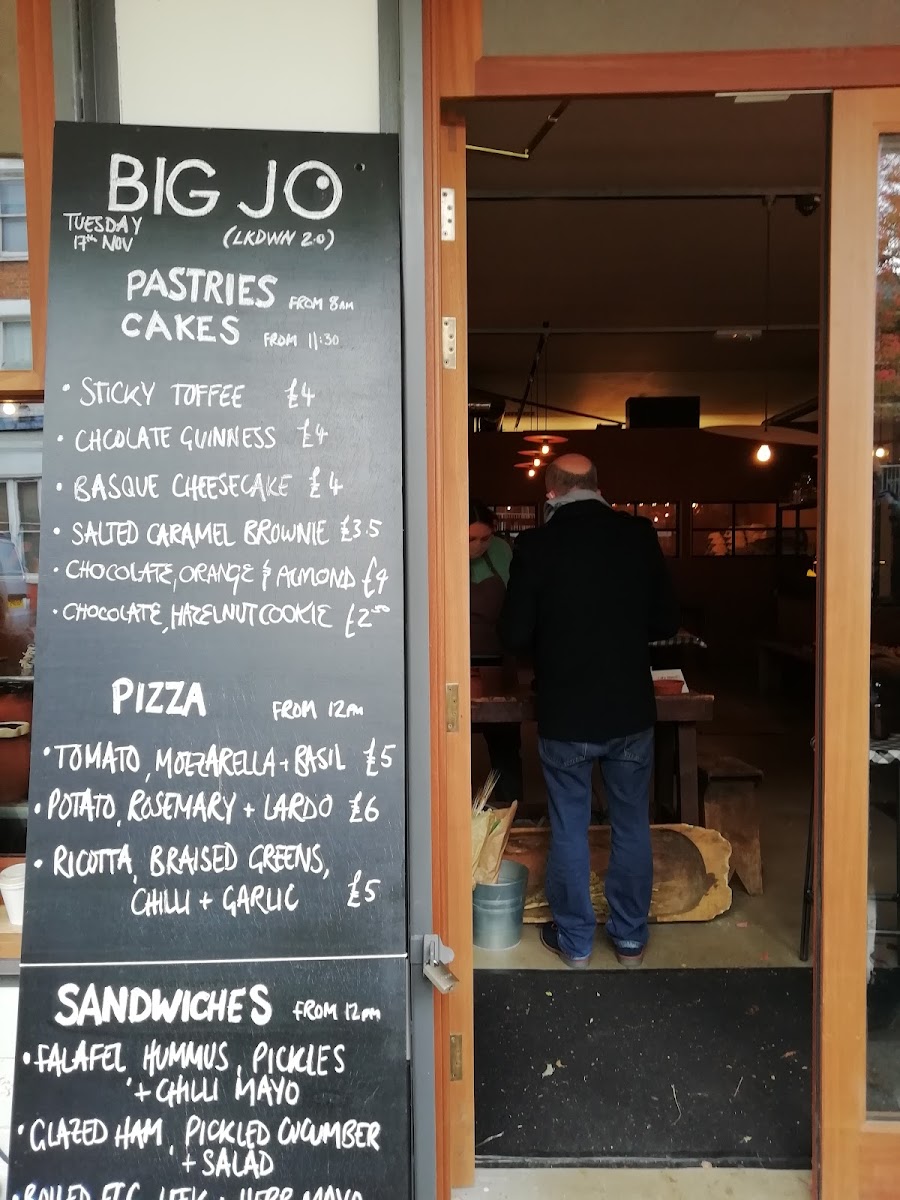 BIG JO
TUESDAY
17TH NOV
(LKDWN 2.0)
PASTRIES FROM 8AM
CAKES FROM 11:30
• STICKY TOFFEE £4
• CHCOLATE GUINNESS £4
• BASQUE CHEESECAKE £4
• SALTED CARAMEL BROWNIE £3.5
• CHOCOLATE, ORANGE & ALMOND £4
• CHOCOLATE, HAZELNUT COOKIE £2.50
PIZZA FROM 12PM
• TOMATO, MOZZARELLA + BASIL £5
• POTATO, ROSEMARY + LARDO £6
• RICOTTA, BRAISED GREENS,
CHILLI + GARLIC £5
SANDWICHES FROM 12PM
• FALAFEL, HUMMUS, PICKLES
+ CHILLI MAYO
• GLAZED HAM, PICKLED CUCUMBER
+ SALAD
• BOILED EGG, LEEK + HERB MAYO